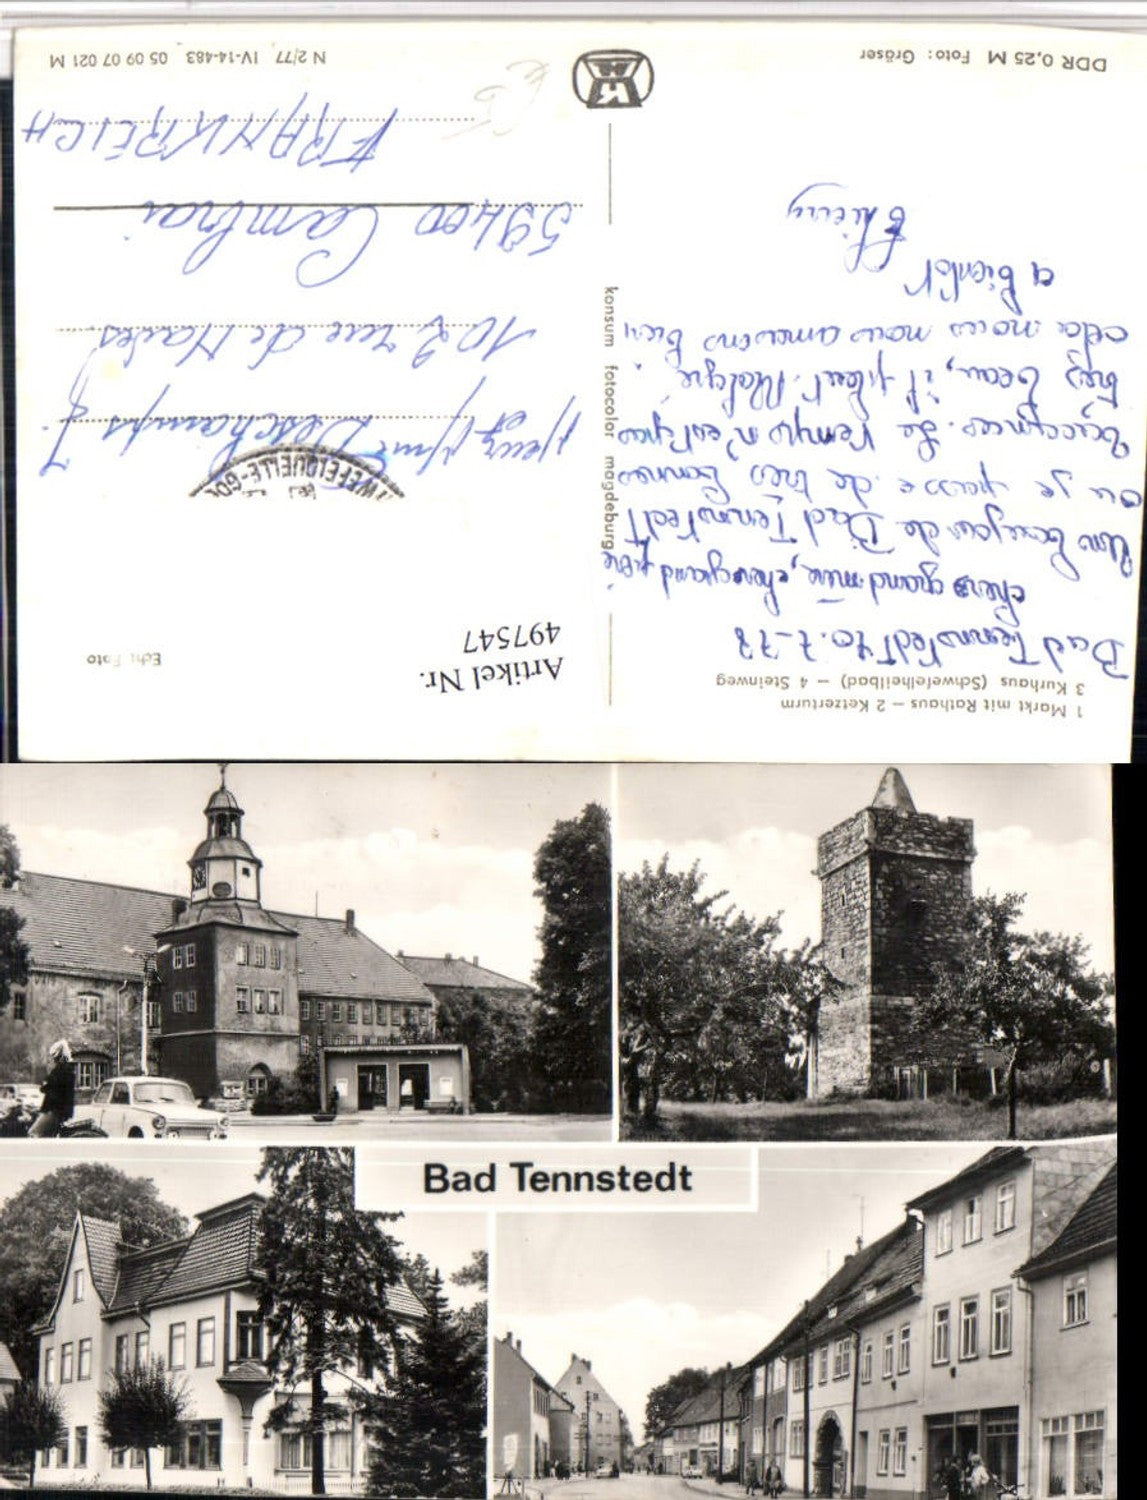 1 Markt mit Rathaus – 2 Ketzerturm
3 Kurhaus (Schwefelheilbad) – 4 Steinweg
Bad Tennstedt 10.7-78
chers grand mère, chers grand père
Un bonjour de Bad Tennstedt
ou je passe de très bonnes
vacances. Le temps n'est pas
très beau, il pleut. Malgré
cela nous nous amusons bien
a bientôt
thierry
DDR 0,25 M Foto: Gräser
konsum fotocolor magdeburg
Artikel Nr.
497547
Echt Foto
WEFELQUELLE-GO
Mr et Mme Deschamps J.
102 rue de
59400 Cambrai
FRANKREICH
N 2/77 IV-14-483 05 09 07 021 M
Bad Tennstedt